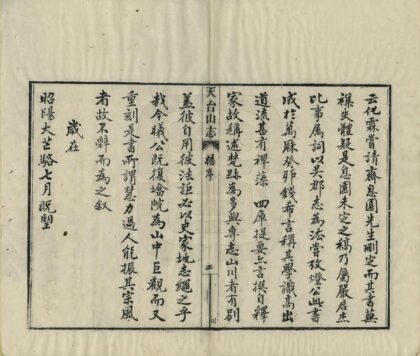 云化霖嘗請齊息園先生刪定而其書蕪
襍失體疑是息園未定之稿乃屬嚴君杰
比事属詞以吳郡志為法嘗攷燈公此書
成於萬厤癸邜錢希言稱其學識高出
道流甚有禪藻 四庫提要亦言撰自釋
家故称述梵跡為多與專志山川者有別
天台山志 楊序 二
盖彼自用彼法詎必以史家地志繩之乎
哉今曦公既復墖院為山中巨觀而又
重刻是書所謂慧力過人能振其宗風
者故不辭而為之叙
歲在
昭陽大芒駱七月既朢